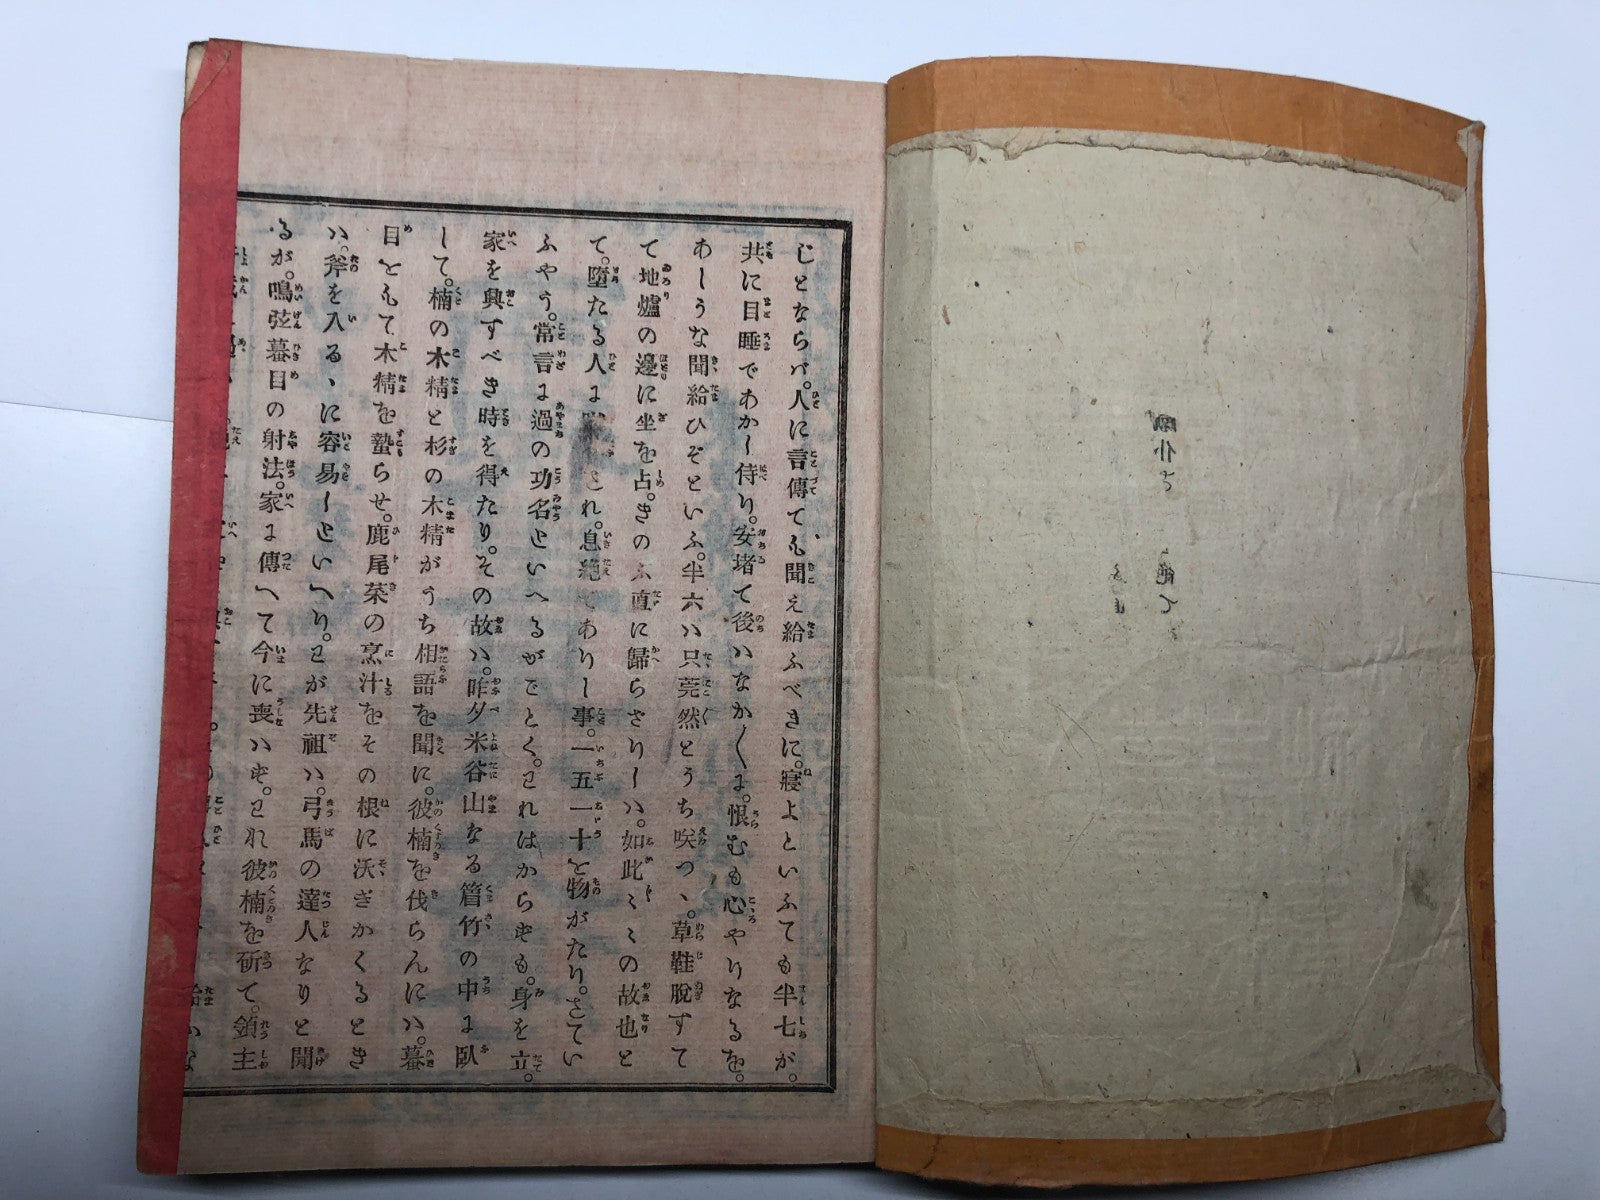 じとならバ。人に言傳ても聞え給ふべきに。寝よといふても半七が。
共に目睡であかし侍り。安堵て後ハなか〱に。恨むも心やりなるを。
あしうな聞給ひぞといふ。半六ハ只莞然とうち咲つゝ。草鞋脱すて
て地爐の邊に坐を占。きのふ直に歸らざりしハ。如此〻〻の故也と
て。墮たる人に され。息絶てありし事。一五一十を物がたり。さてい
ふやう。常言に過の功名といへるがごとく。これはからずも。身を立。
家を興すべき時を得たり。その故ハ。昨夕米谷山なる篠竹の中に臥
して。楠の木精と杉の木精がうち相語を聞に。彼楠を伐らんにハ。蟇
目をもて木精を蟄らせ。鹿尾菜の烹汁をその根に沃ぎかくるとき
ハ。斧を入るゝに容易しといへり。わが先祖ハ。弓馬の達人なりと聞
るが。鳴弦蟇目の射法。家に傳へて今に喪ハず。われ彼楠を斫て。領主